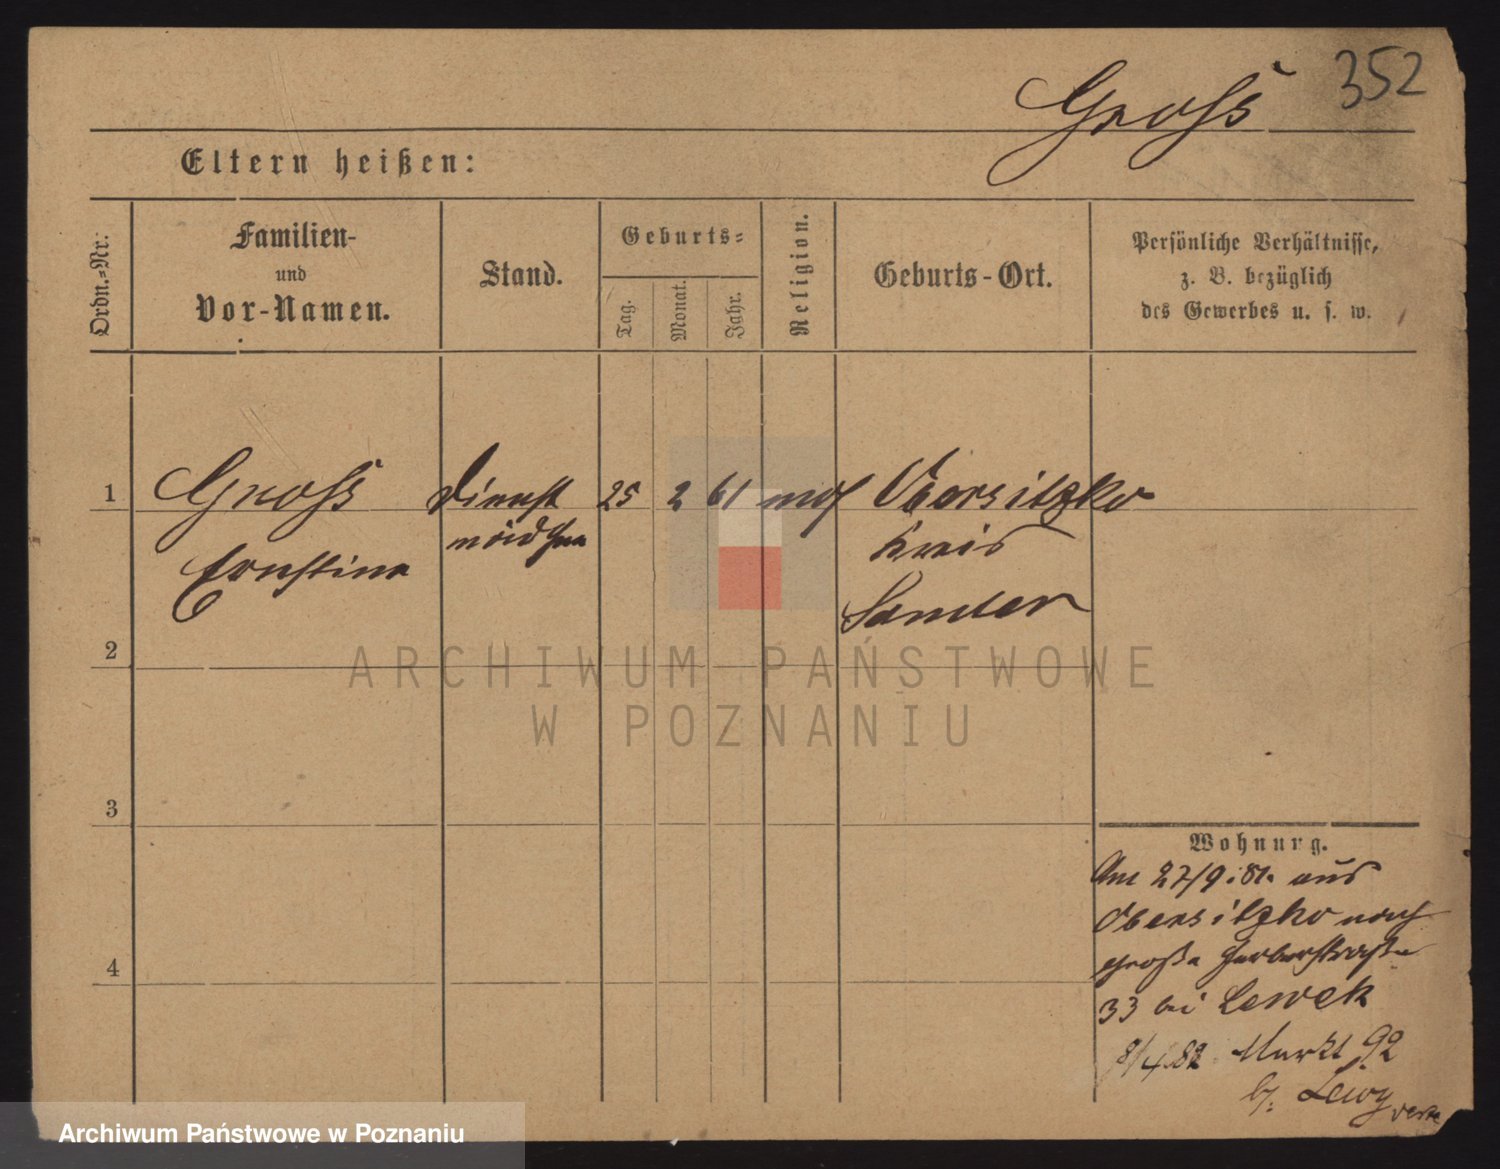 352
Gross
Eltern heißen:
Ordn.=Nr.
Familien-
und
Vor-Namen.
Stand.
Geburts=
Tag.
Monat.
Jahr.
Religion.
Geburts-Ort.
Persönliche Verhältnisse,
z. B. bezüglich
des Gewerbes u. s. w.
1
Gross
Ernstine
Dienst
mädchen
25
2
61
mos
Obersitzko
Kreis
Samter
2
3
4
Wohnung.
Am 27/9.81. aus
Obersitzko nach
große Gerberstraße
33 bei Lewek
8/4.82 Markt 92
b/. Lewy
ARCHIWUM PAŃSTWOWE
W POZNANIU
Archiwum Państwowe w Poznaniu